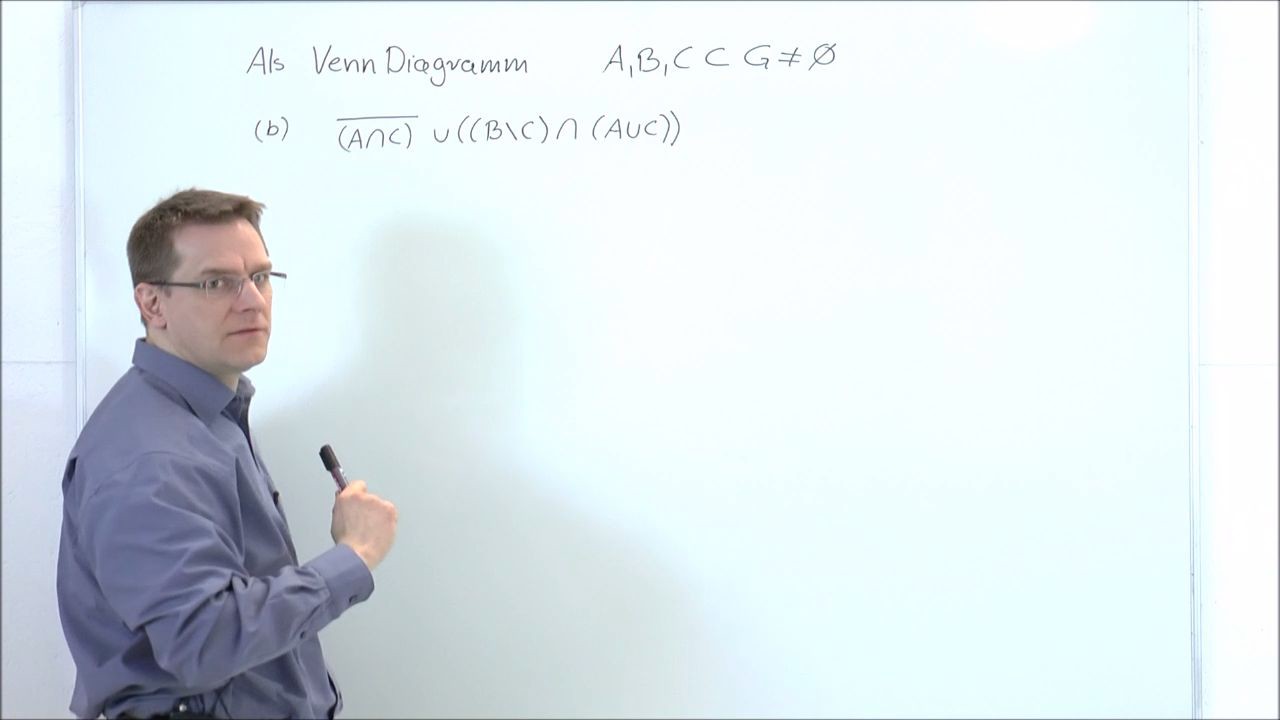 Als Venn Diagramm A, B, C ⊂ G ≠ ∅
(b) \overline{(A∩C)} ∪ ((B\C) ∩ (A∪C))